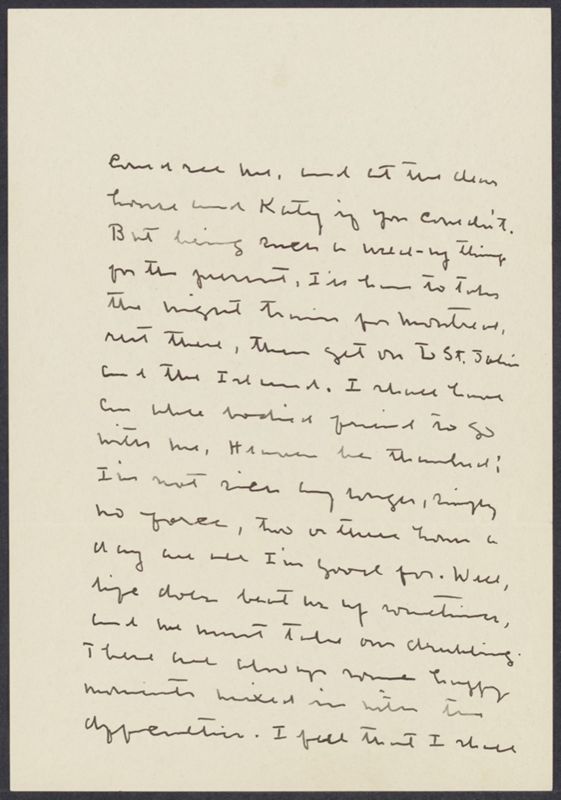 could see me, and at the dear
house and Katy if you couldn't.
But being such a weed-ny thing
for the present, I'll have to take
the night train for Montreal,
rest there, then get on to St. John
and the Island. I shall have
an able bodied friend to go
with me, Heaven be thanked!
I'm not sick any longer, simply
no force, two or three hours a
day are all I'm good for. Well,
life does beat us up sometimes,
and we must take our drubbing.
There are always some happy
moments mixed in with the
I feel that I shall